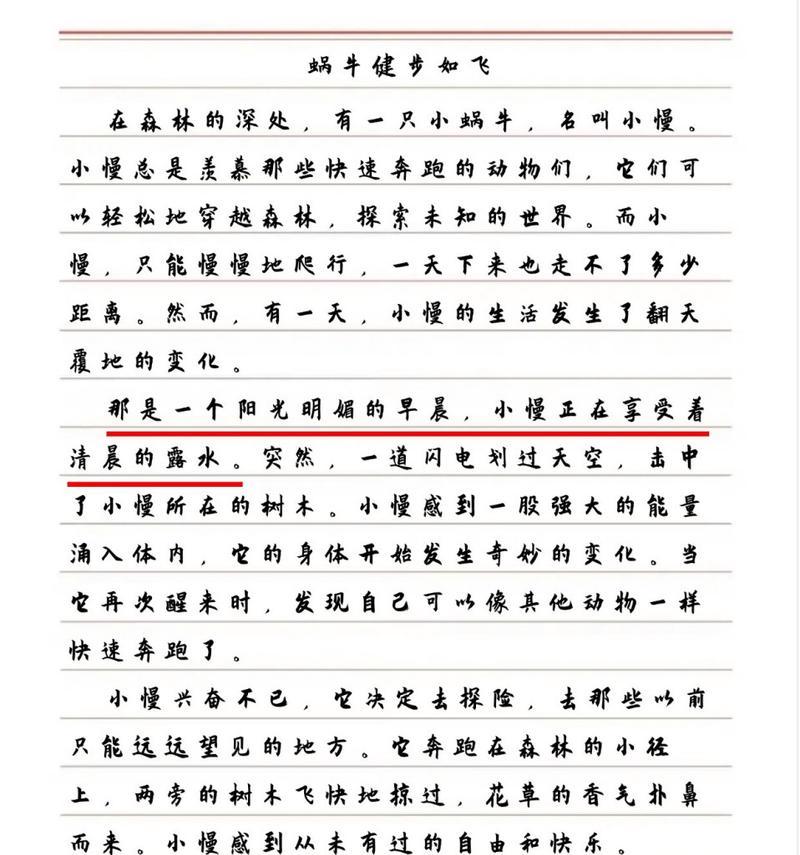 蜗牛健步如飞
在森林的深处，有一只小蜗牛，名叫小慢。
小慢总是羡慕那些快速奔跑的动物们，它们可
以轻松地穿越森林，探索未知的世界。而小
慢，只能慢慢地爬行，一天下来也走不了多少
距离。然而，有一天，小慢的生活发生了翻天
覆地的变化。
那是一个阳光明媚的早晨，小慢正在享受着
清晨的露水。突然，一道闪电划过天空，击中
了小慢所在的树木。小慢感到一股强大的能量
涌入体内，它的身体开始发生奇妙的变化。当
它再次醒来时，发现自己可以像其他动物一样
快速奔跑了。
小慢兴奋不已，它决定去探险，去那些以前
只能远远望见的地方。它奔跑在森林的小径
上，两旁的树木飞快地掠过，花草的香气扑鼻
而来。小慢感到从未有过的自由和快乐。